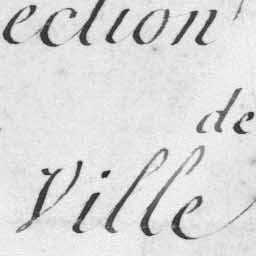 ection
de
Ville